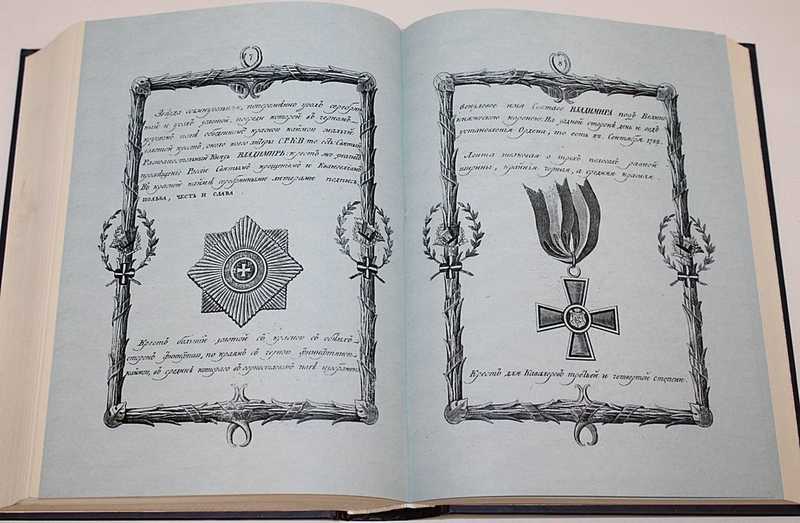 7
Звѣзда осмиугольная, поперемѣнно уголъ серебряной и уголъ золотой, посреди которой въ черномъ
кругломъ полѣ обведенномъ красною каймою малый
золотой крестъ, около него литеры С.Р.К.В. то есть Святый
Равноапостольный Князь ВЛАДИМИРЪ: крестъ же
просвѣщеніе Россіи Святымъ крещеніемъ и Евангеліемъ
Въ красной каймѣ серебряными литерами подпись
ПОЛЬЗА, ЧЕСТЬ И СЛАВА
Крестъ большій золотой съ красною съ обѣихъ
сторонъ финифтью, по краямъ съ черною финифтяною
каймою, въ срединѣ котораго въ горностаевомъ полѣ изображено
8
вензловое имя Святаго ВЛАДИМИРА подъ Велико
княжескою короною. На задней сторонѣ день и годъ
установленія Ордена, то есть 22. Сентября 1782.
Лента шолковая о трехъ полосахъ равной
ширины, крайнія черныя, а средняя красная.
Крестъ для Кавалеровъ третьей и четвертой степени.